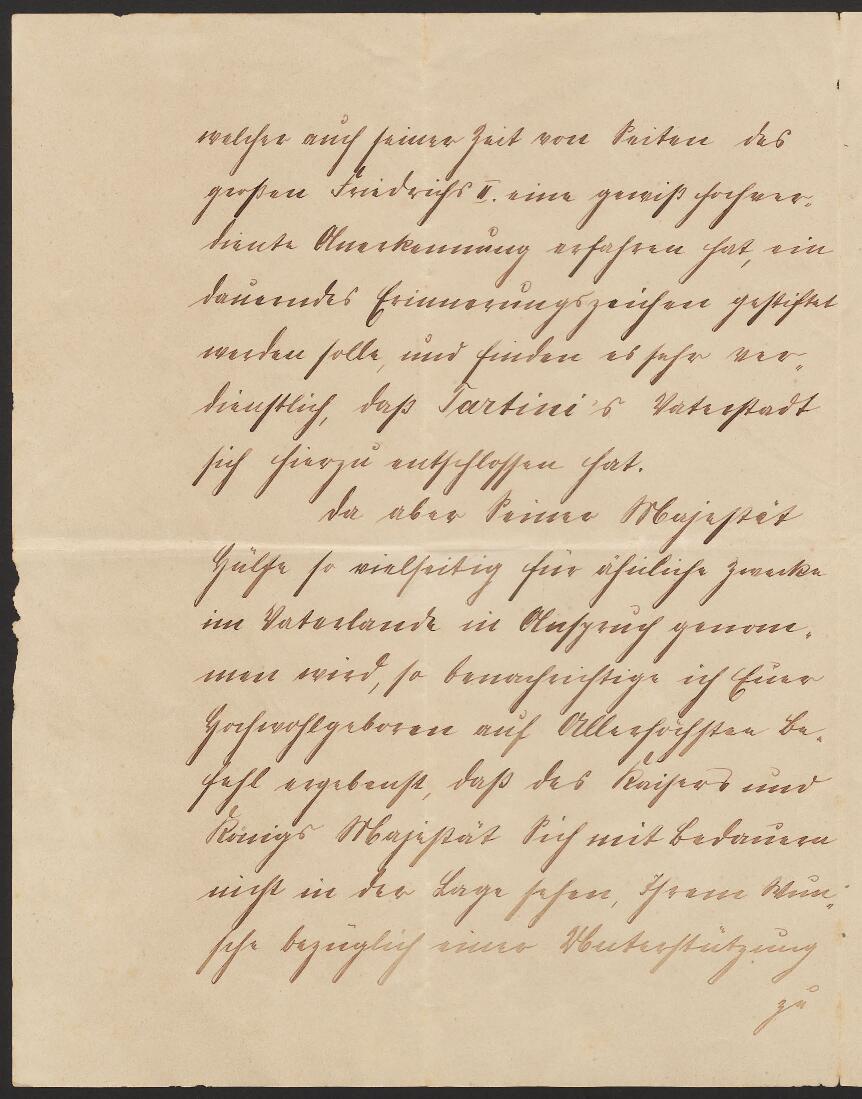 welcher auch seiner Zeit von Seiten des
großen Friedrichs II. eine gewiß hochver-
diente Anerkennung erfahren hat, ein
dauerndes Erinnerungszeichen gestiftet
werden solle, und finden es sehr ver-
dienstlich, daß Tartini's Vaterstadt
sich hierzu entschlossen hat.
Da aber Seiner Majestät
Hülfe so vielseitig für ähnliche Zwecke
im Vaterlande in Anspruch genom-
men wird, so benachrichtige ich Euer
Hochwohlgeboren auf Allerhöchsten Be-
fehl ergebenst, daß des Kaisers und
Königs Majestät Sich mit Bedauern
nicht in der Lage sehen, Ihrem Wun-
sche bezüglich einer Unterstützung
zu